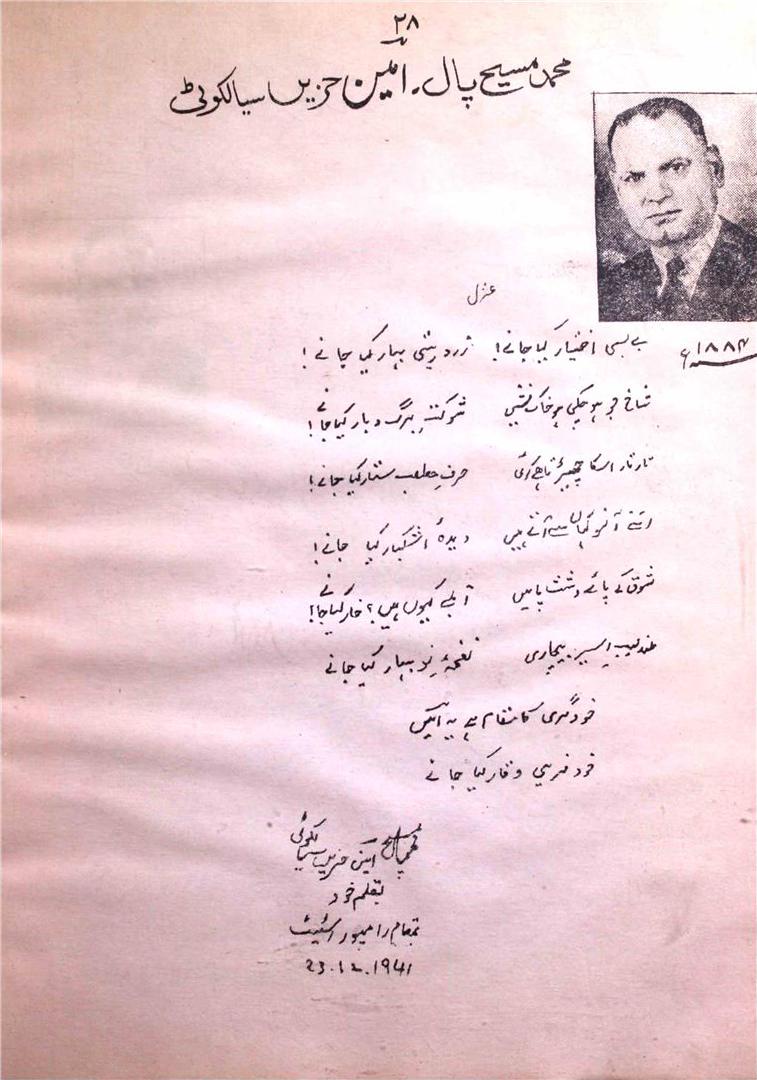 ۲۸
محمد مسیح پال۔ امین حزیں سیالکوٹی
غزل
۱۸۸۴ء
بے بسی اختیار کیا جانے! زرد رتی بہار کیا جانے!
شاخ جو ہو چکی ہو خاک نشیں شوکتِ برگ و بار کیا جانے!
تار تار اسکا چھیڑتا ہے کوئی حرفِ مطلب ستار کیا جانے!
اتنے آنسو کہاں سے آتے ہیں دیدۂ اشکبار کیا جانے!
شوق کے پائے دشت پا میں آبلے کیوں ہیں؟ خار کیا جانے!
عندلیبِ اسیر بیچاری نغمۂ نو بہار کیا جانے
خودگری کا مقام ہے یہ امیں
خود فریبی وقار کیا جانے
محمد مسیح پال امین حزیں سیالکوٹی
بقلم خود
بمقام رامپور اسٹیٹ
23.12.1941